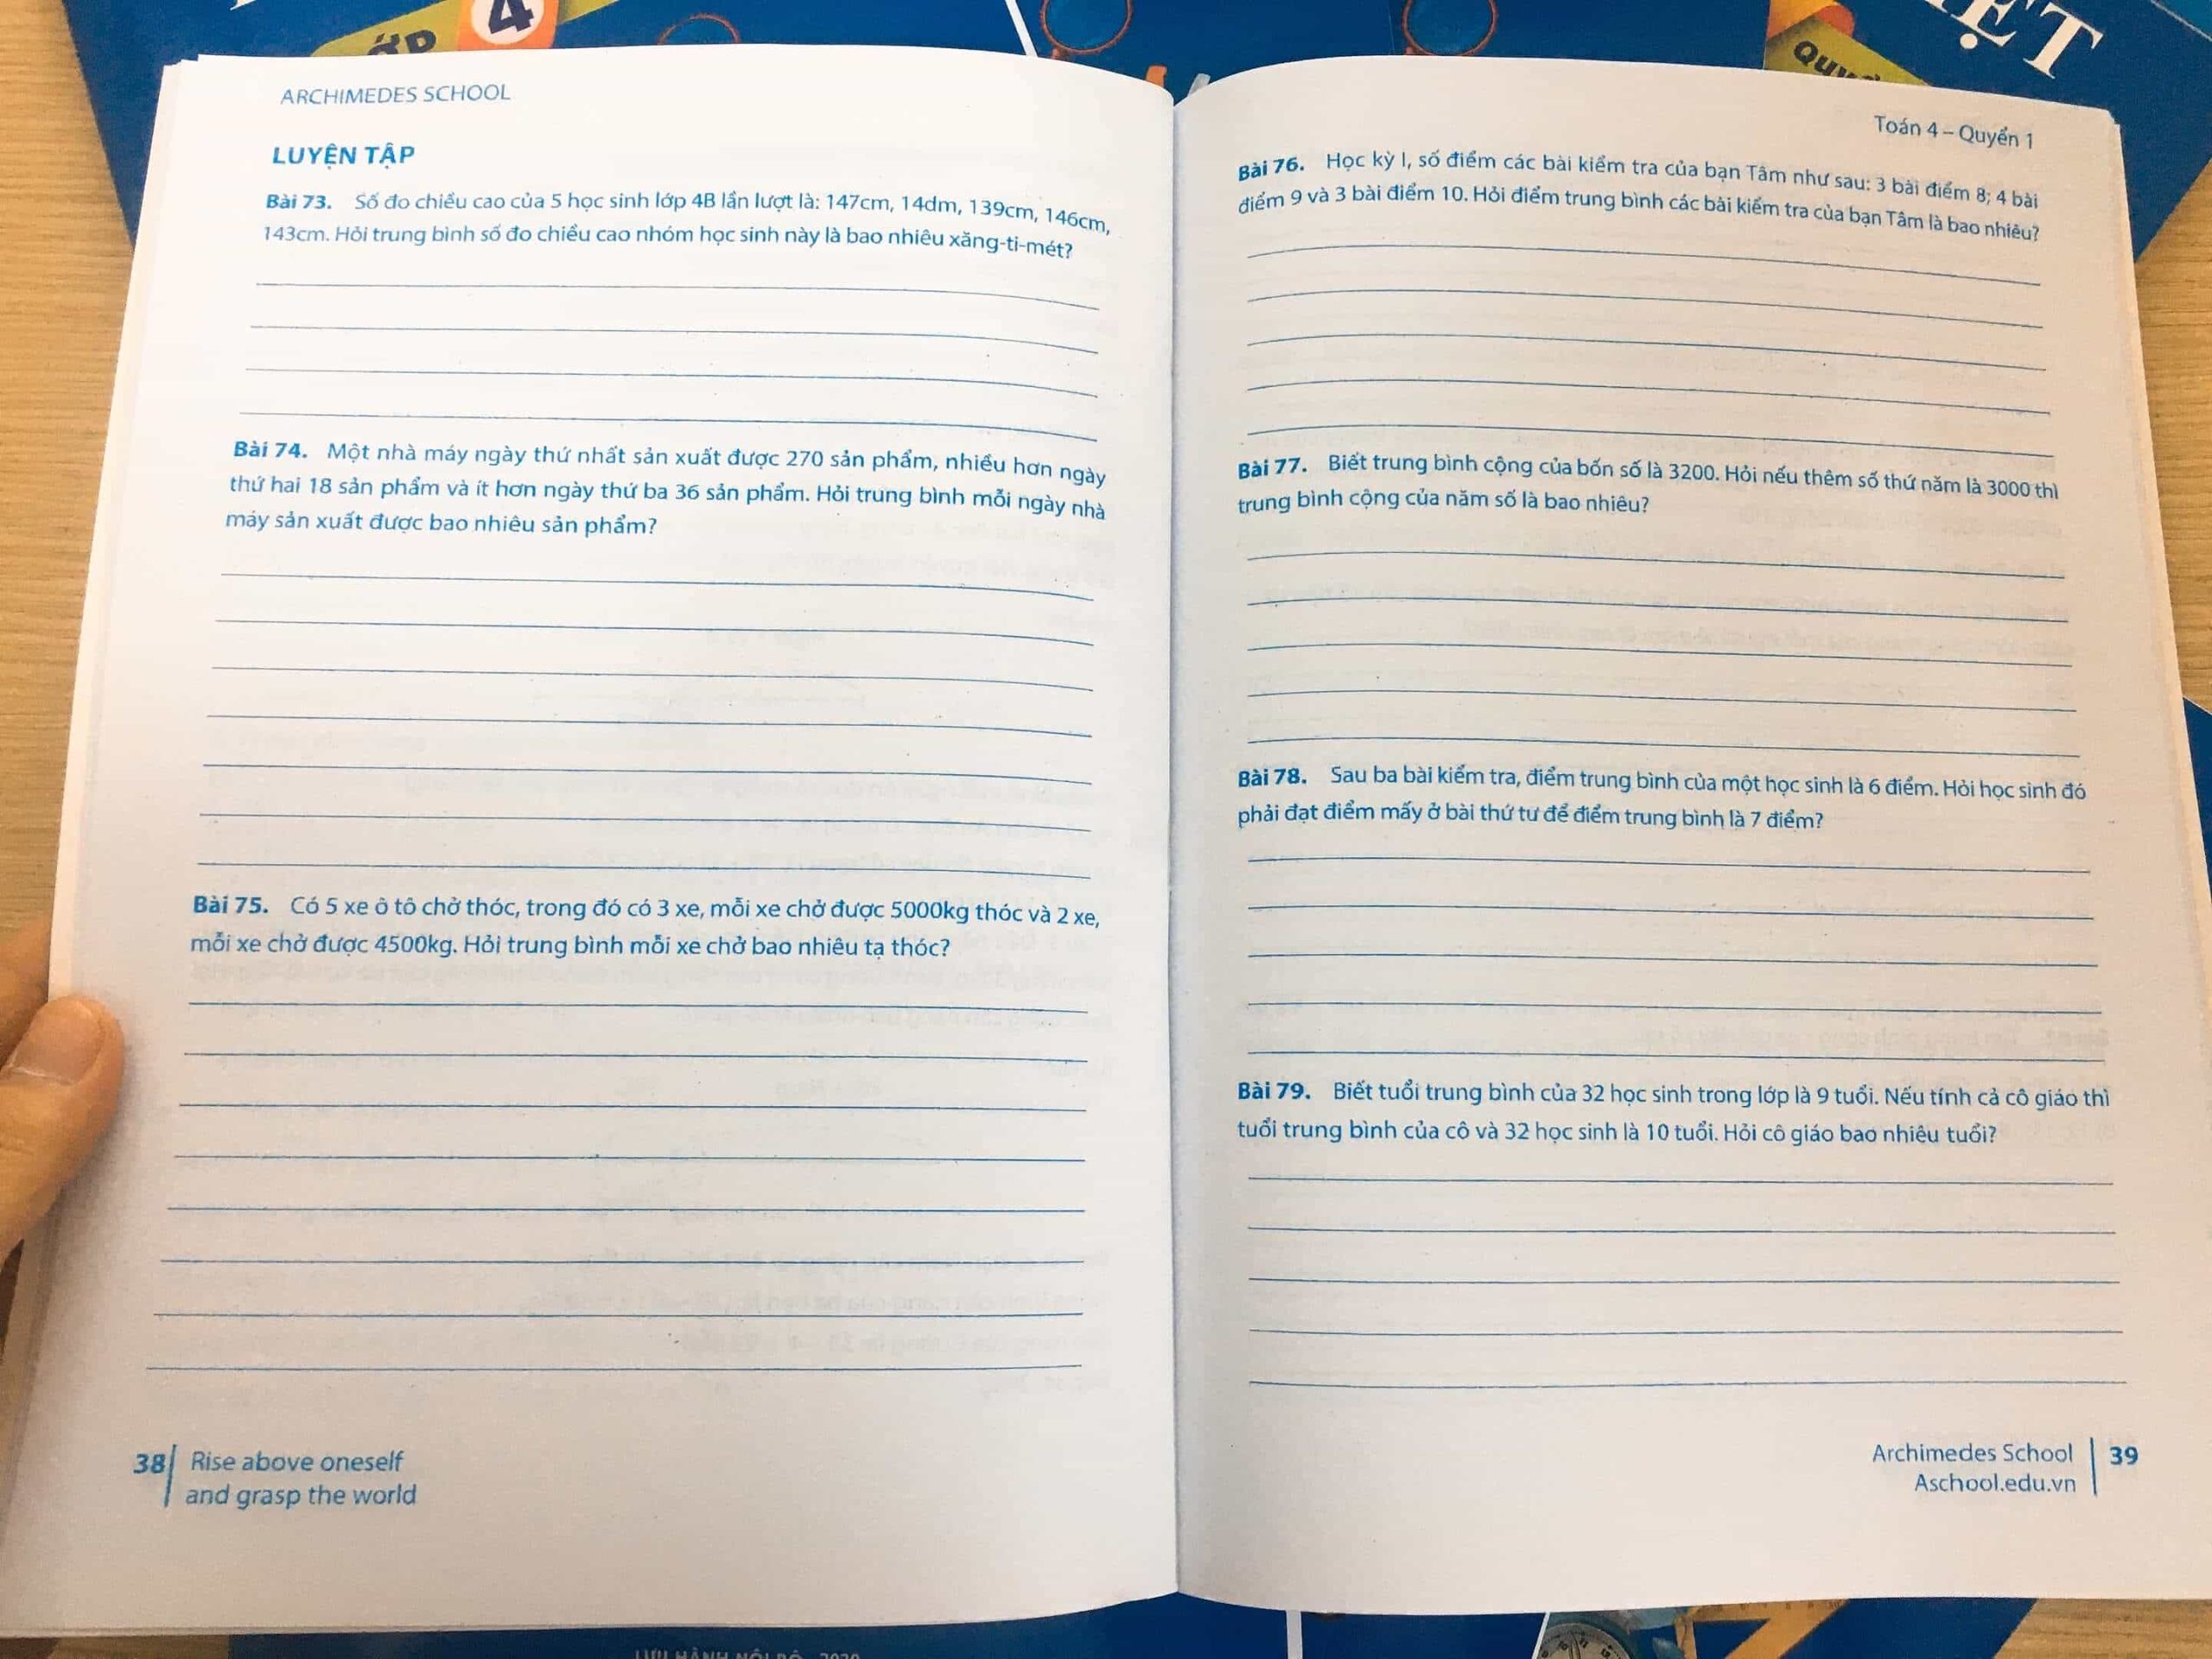 ỚP 4
QUY
IỆT
ARCHIMEDES SCHOOL
LUYỆN TẬP
Bài 73. Số đo chiều cao của 5 học sinh lớp 4B lần lượt là: 147cm, 14dm, 139cm, 146cm,
143cm. Hỏi trung bình số đo chiều cao nhóm học sinh này là bao nhiêu xăng-ti-mét?
Bài 74. Một nhà máy ngày thứ nhất sản xuất được 270 sản phẩm, nhiều hơn ngày
thứ hai 18 sản phẩm và ít hơn ngày thứ ba 36 sản phẩm. Hỏi trung bình mỗi ngày nhà
máy sản xuất được bao nhiêu sản phẩm?
Bài 75. Có 5 xe ô tô chở thóc, trong đó có 3 xe, mỗi xe chở được 5000kg thóc và 2 xe,
mỗi xe chở được 4500kg. Hỏi trung bình mỗi xe chở bao nhiêu tạ thóc?
38 Rise above oneself
and grasp the world
Toán 4 – Quyển 1
Bài 76. Học kỳ I, số điểm các bài kiểm tra của bạn Tâm như sau: 3 bài điểm 8; 4 bài
điểm 9 và 3 bài điểm 10. Hỏi điểm trung bình các bài kiểm tra của bạn Tâm là bao nhiêu?
Bài 77. Biết trung bình cộng của bốn số là 3200. Hỏi nếu thêm số thứ năm là 3000 thì
trung bình cộng của năm số là bao nhiêu?
Bài 78. Sau ba bài kiểm tra, điểm trung bình của một học sinh là 6 điểm. Hỏi học sinh đó
phải đạt điểm mấy ở bài thứ tư để điểm trung bình là 7 điểm?
Bài 79. Biết tuổi trung bình của 32 học sinh trong lớp là 9 tuổi. Nếu tính cả cô giáo thì
tuổi trung bình của cô và 32 học sinh là 10 tuổi. Hỏi cô giáo bao nhiêu tuổi?
Archimedes School 39
Aschool.edu.vn
LƯU HÀNH NỘI BỘ - 2020